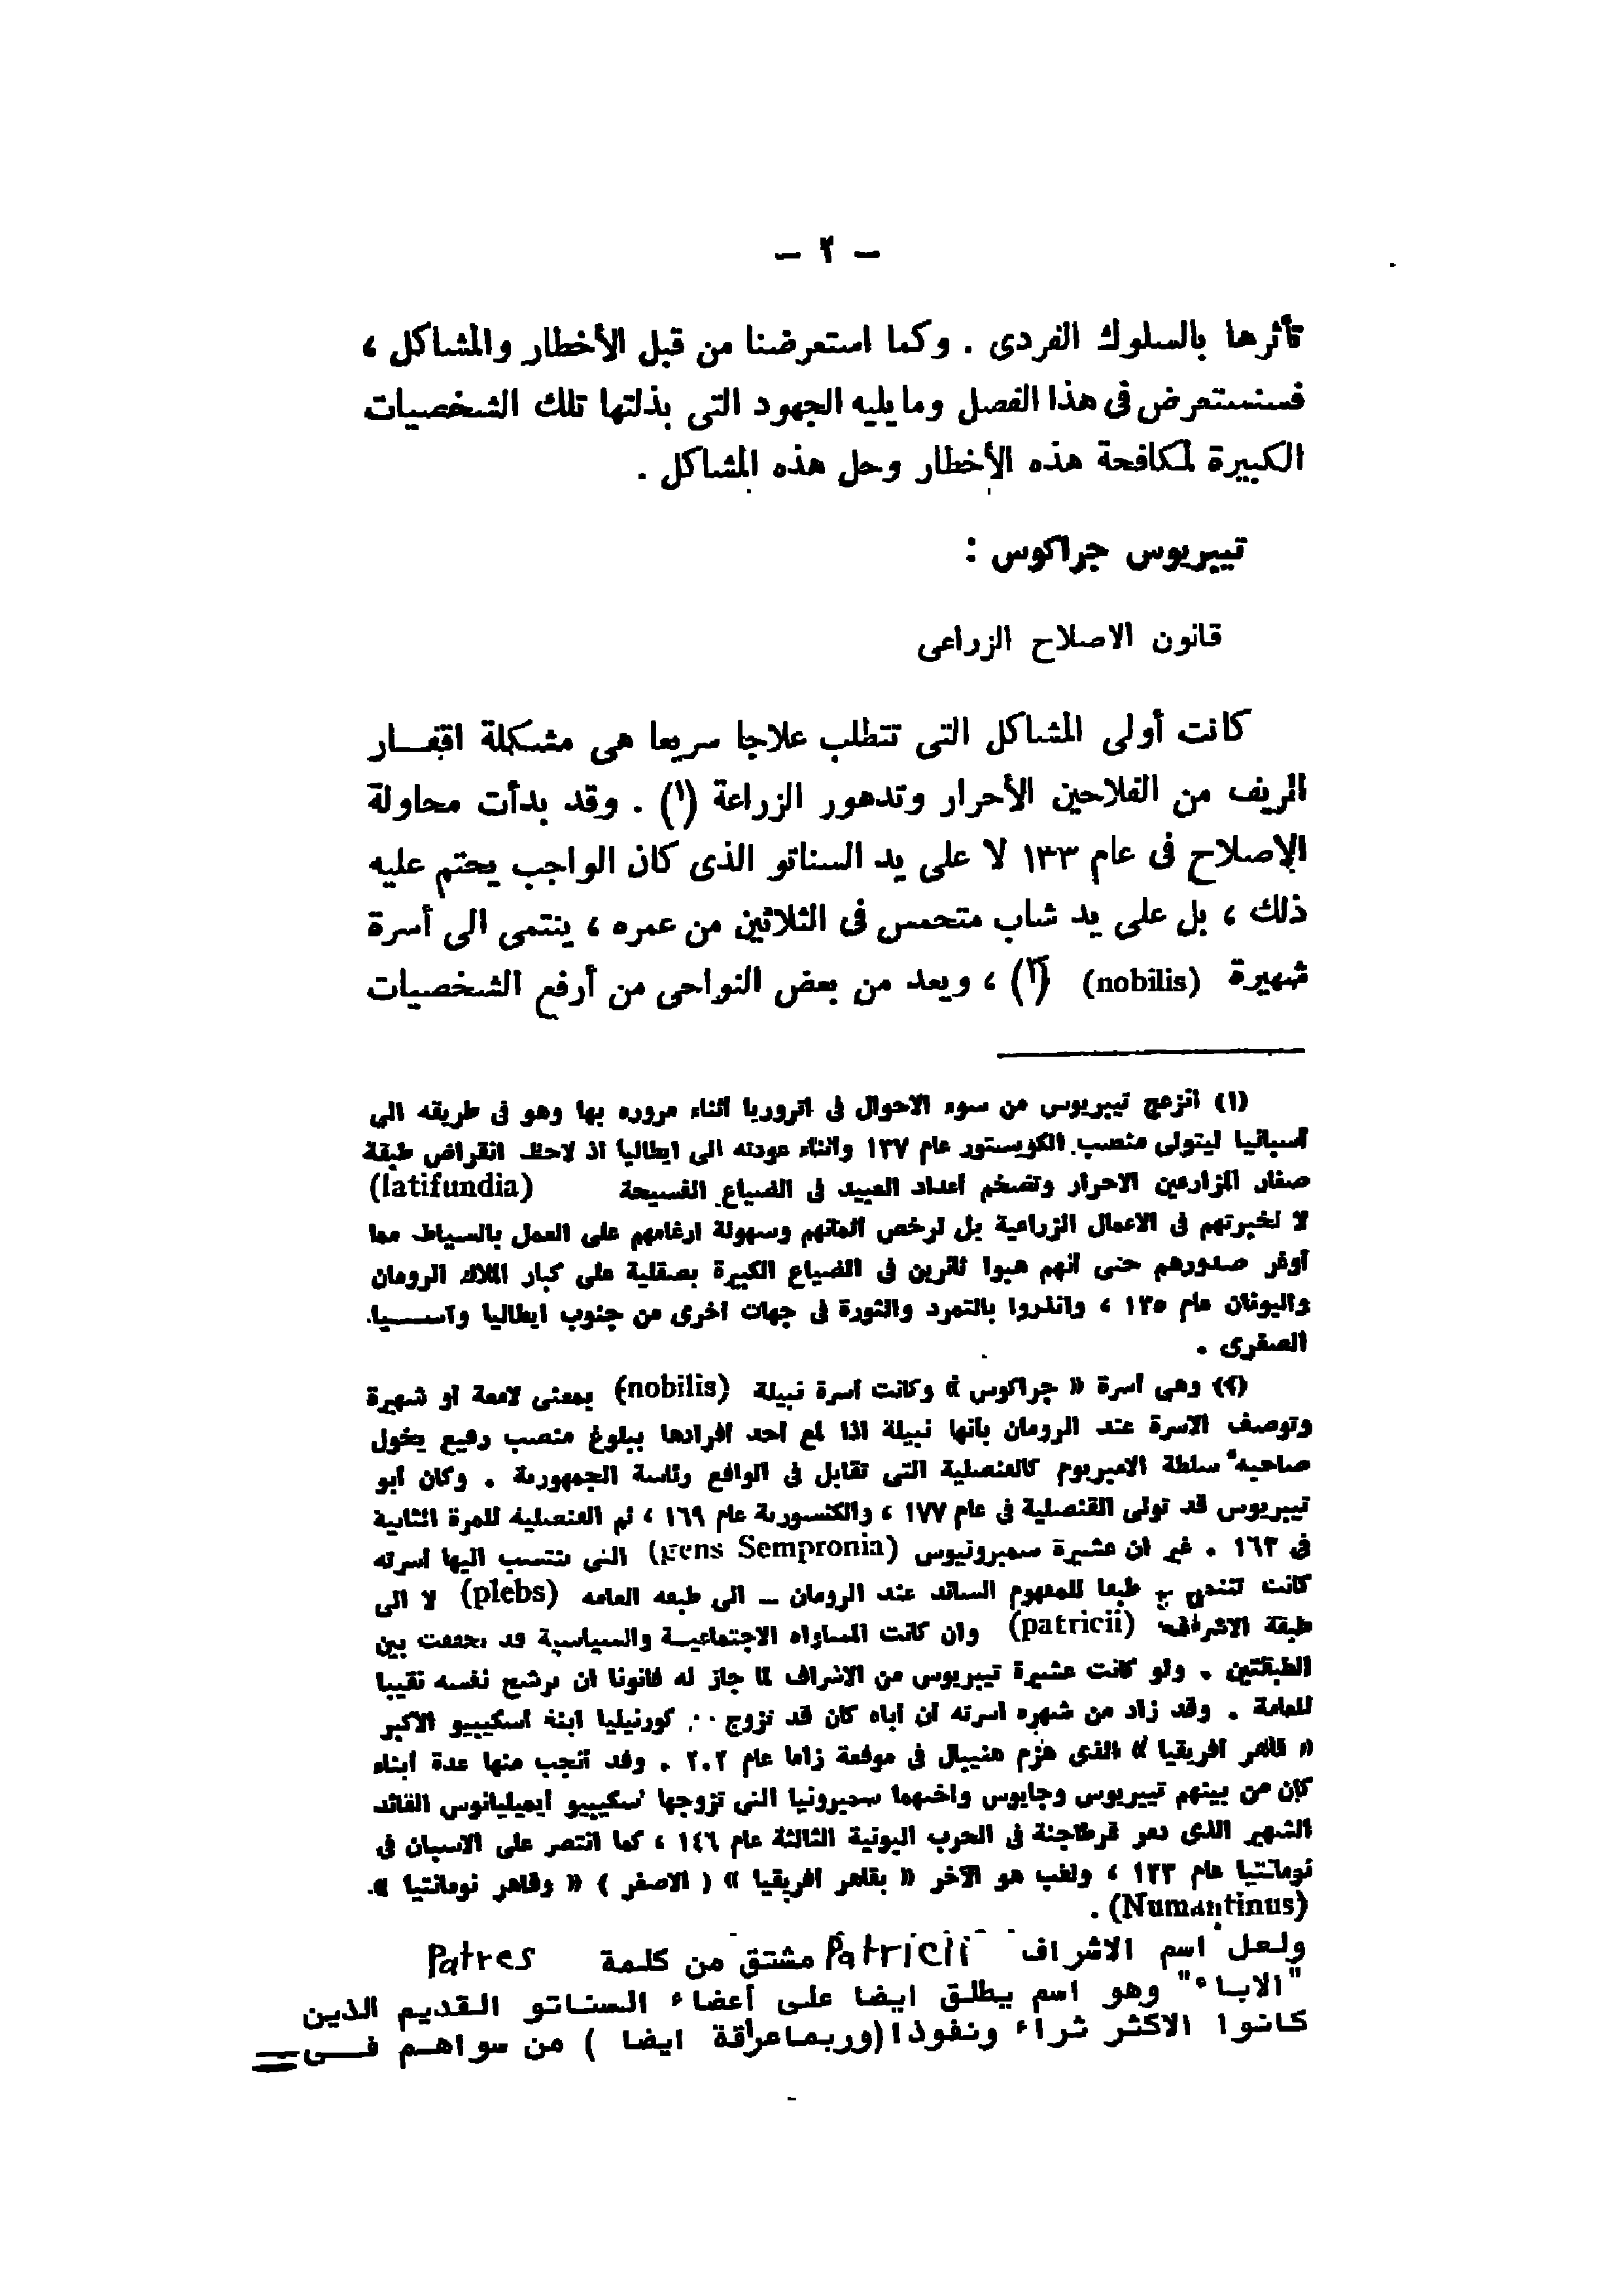 — ٢ —
تأثرها بالسلوك الفردى . وكما استعرضنا من قبل الأخطار والمشاكل ،
فسنستعرض فى هذا الفصل وما يليه الجهود التى بذلتها تلك الشخصيات
الكبيرة لمكافحة هذه الأخطار وحل هذه المشاكل .
تيبريوس جراكوس :
قانون الاصلاح الزراعى
كانت أولى المشاكل التى تتطلب علاجا سريعا هى مشكلة اقفـــار
الريف من الفلاحين الأحرار وتدهور الزراعة (١) . وقد بدأت محاولة
الإصلاح فى عام ١٣٣ لا على يد السناتو الذى كان الواجب يحتم عليه
ذلك ، بل على يد شاب متحمس فى الثلاثين من عمره ، ينتمى الى أسرة
شهيرة (nobilis) (٢) ، ويعد من بعض النواحى من أرفع الشخصيات
(١) انزعج تيبريوس من سوء الاحوال فى اتروريا أثناء مروره بها وهو فى طريقه الى
أسبانيا ليتولى منصب الكويستور عام ١٣٧ وأثناء عودته الى ايطاليا اذ لاحظ انقراض طبقة
صغار المزارعين الاحرار وتضخم أعداد العبيد فى الضياع الفسيحة (latifundia)
لا لخبرتهم فى الاعمال الزراعية بل لرخص أثمانهم وسهولة ارغامهم على العمل بالسياط مما
أوغر صدورهم حتى أنهم هبوا ثائرين فى الضياع الكبيرة بصقلية على كبار الملاك الرومان
واليونان عام ١٣٥ ، وانذروا بالتمرد والثورة فى جهات أخرى من جنوب ايطاليا وآســـيا
الصغرى .
(٢) وهى أسرة « جراكوس » وكانت أسرة نبيلة (nobilis) بمعنى لامعة أو شهيرة
وتوصف الاسرة عند الرومان بأنها نبيلة اذا لمع أحد أفرادها ببلوغ منصب رفيع يخول
صاحبه سلطة الامبريوم كالقنصلية التى تقابل فى الواقع رئاسة الجمهورية . وكان أبو
تيبريوس قد تولى القنصلية فى عام ١٧٧ ، والكنسورية عام ١٦٩ ، ثم القنصلية للمرة الثانية
فى ١٦٣ . غير أن عشيرة سمبرونيوس (gens Sempronia) التى تنتسب اليها أسرته
كانت تنتمى طبقا للمفهوم السائد عند الرومان – الى طبقة العامة (plebs) لا الى
طبقة الاشراف (patricii) وان كانت المساواة الاجتماعيــة والسياسية قد تحققت بين
الطبقتين . ولو كانت عشيرة تيبريوس من الاشراف لما جاز له قانونا أن يرشح نفسه نقيبا
للعامة . وقد زاد من شهرة أسرته أن أباه كان قد تزوج كورنيليا ابنة اسكيبيو الاكبر
« قاهر أفريقيا » الذى هزم هنيبال فى موقعة زاما عام ٢٠٢ . وقد أنجب منها عدة أبناء
كان من بينهم تيبريوس وجايوس وأختهما سمبرونيا التى تزوجها اسكيبيو ايميليانوس القائد
الشهير الذى دمر قرطاجنة فى الحرب البونية الثالثة عام ١٤٦ ، كما انتصر على الاسبان فى
نومانتيا عام ١٣٣ ، ولقب هو الآخر « بقاهر افريقيا » ( الاصغر ) « وقاهر نومانتيا »
(Numantinus) .
ولعل اسم الاشراف Patricii مشتق من كلمة Patres
"الاباء" وهو اسم يطلق ايضا على أعضاء السناتو القديم الذين
كانوا الاكثر ثراء ونفوذا (وربما عراقة ايضا ) من سواهــم فـــى